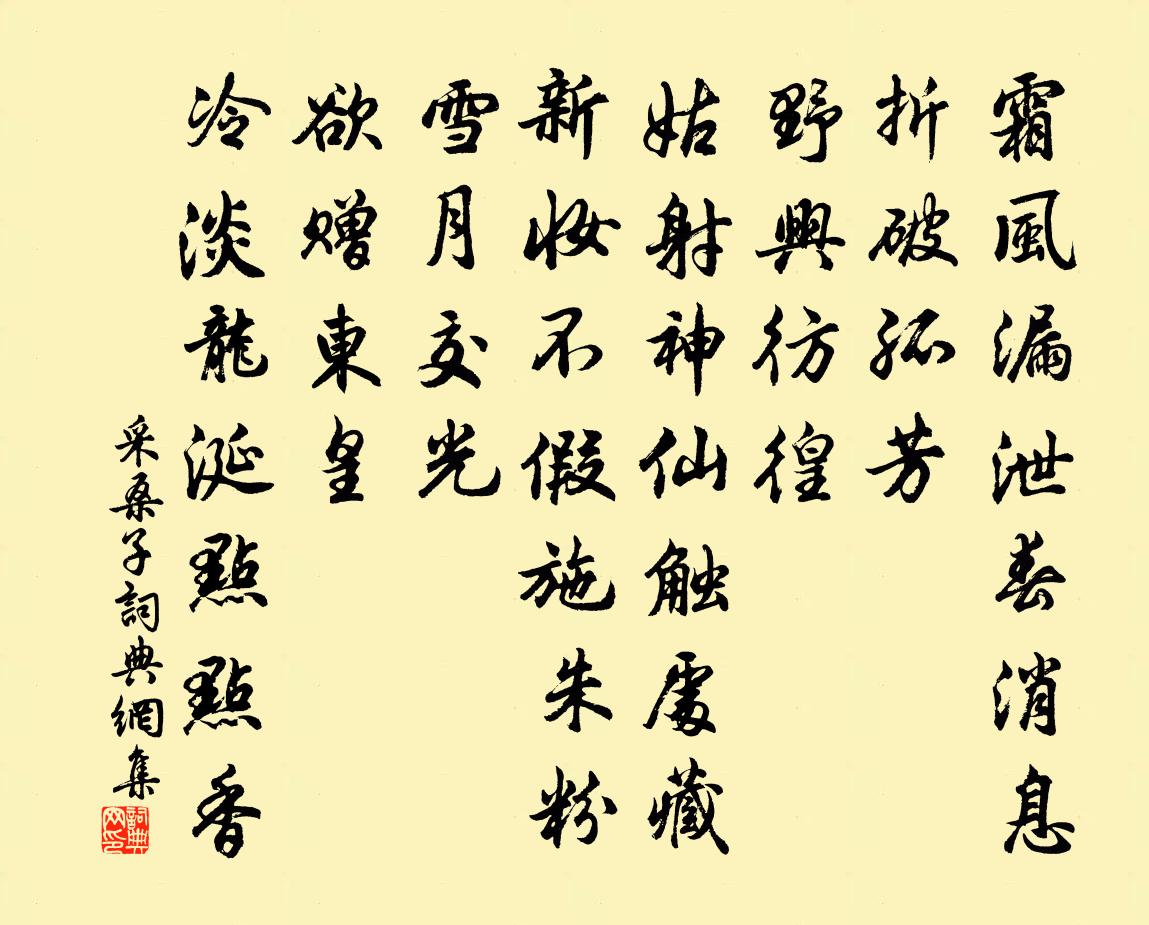 霜風漏泄春消息
折破孤芳
野興彷徨
姑射神仙触處藏
新妝不假施朱粉
雪月交光
欲贈東皇
冷淡龍涎點點香
采桑子詞典網集
詞典網印